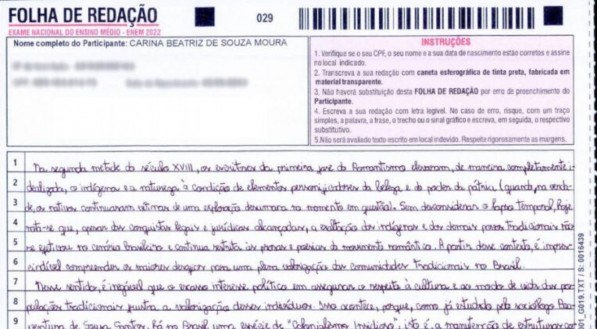 FOLHA DE REDAÇÃO
029
EXAME NACIONAL DO ENSINO MÉDIO - ENEM 2022
Nome completo do Participante: CARINA BEATRIZ DE SOUZA MOURA
INSTRUÇÕES
1. Verifique se o seu CPF, o seu nome e a sua data de nascimento estão corretos e assine
no local indicado.
2. Transcreva a sua redação com caneta esferográfica de tinta preta, fabricada em
material transparente.
3. Não haverá substituição desta FOLHA DE REDAÇÃO por erro de preenchimento do
Participante.
4. Escreva a sua redação com letra legível. No caso de erro, risque, com um traço
simples, a palavra, a frase, o trecho ou o sinal gráfico e escreva, em seguida, o respectivo
substitutivo.
5. Não será avaliado texto escrito em local indevido. Respeite rigorosamente as margens.
1 Na segunda metade do século XVIII, os escritores da primeira fase do Romantismo elevaram, de maneira completamente i-
2 dealizada, os indígenas e a natureza à condição de elementos personificadores da beleza e do poder da pátria (quando, na verda-
3 de, os nativos continuaram vítimas de uma exploração desumana no momento em questão). Sem desconsiderar o lapso temporal, hoje
4 nota-se que, apesar das conquistas legais e jurídicas alcançadas, a exaltação dos indígenas e dos demais povos tradicionais não
5 se efetivou no cenário brasileiro e continua restrita às prosas e poesias do movimento romântico. A partir desse contexto, é impres-
6 cindível compreender os maiores desafios para uma plena valorização das comunidades tradicionais no Brasil.
7 Nesse sentido, é inegável que o escasso interesse político em assegurar o respeito à cultura e ao modo de vida das po-
8 pulações tradicionais frustra a valorização desses indivíduos. Isso acontece, porque, como já estudado pelo sociólogo Boa-
9 ventura de Sousa Santos, há no Brasil uma espécie de "Colonialismo Insidioso", isto é, a manutenção de estruturas
001_G019.TXT / S: 0016439